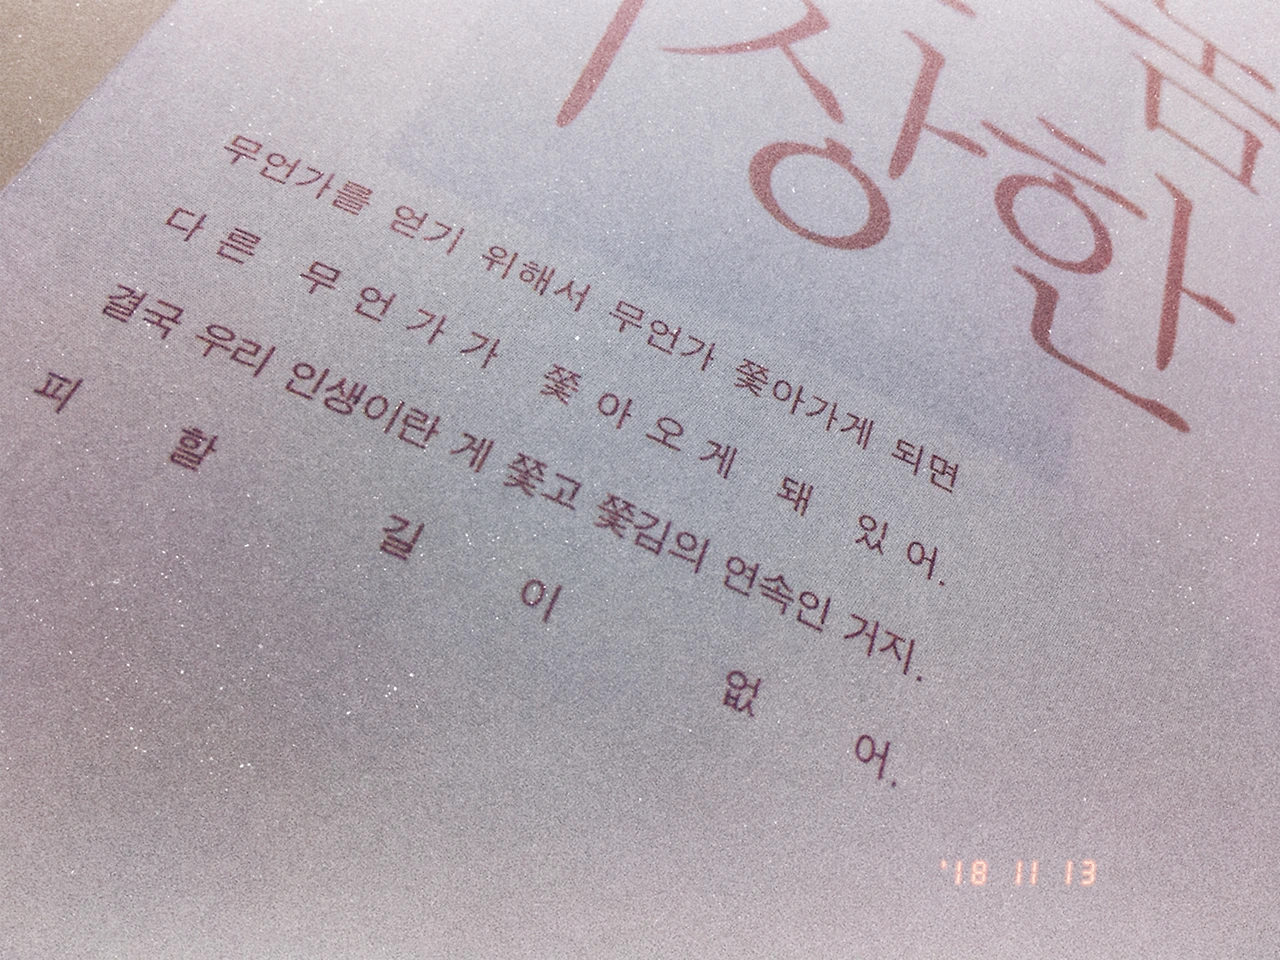 상한
무언가를 얻기 위해서 무언가 쫓아가게 되면
다른 무언가가 쫓아오게 돼 있어.
결국 우리 인생이란 게 쫓고 쫓김의 연속인 거지.
피할 길이 없어.
'18 11 13